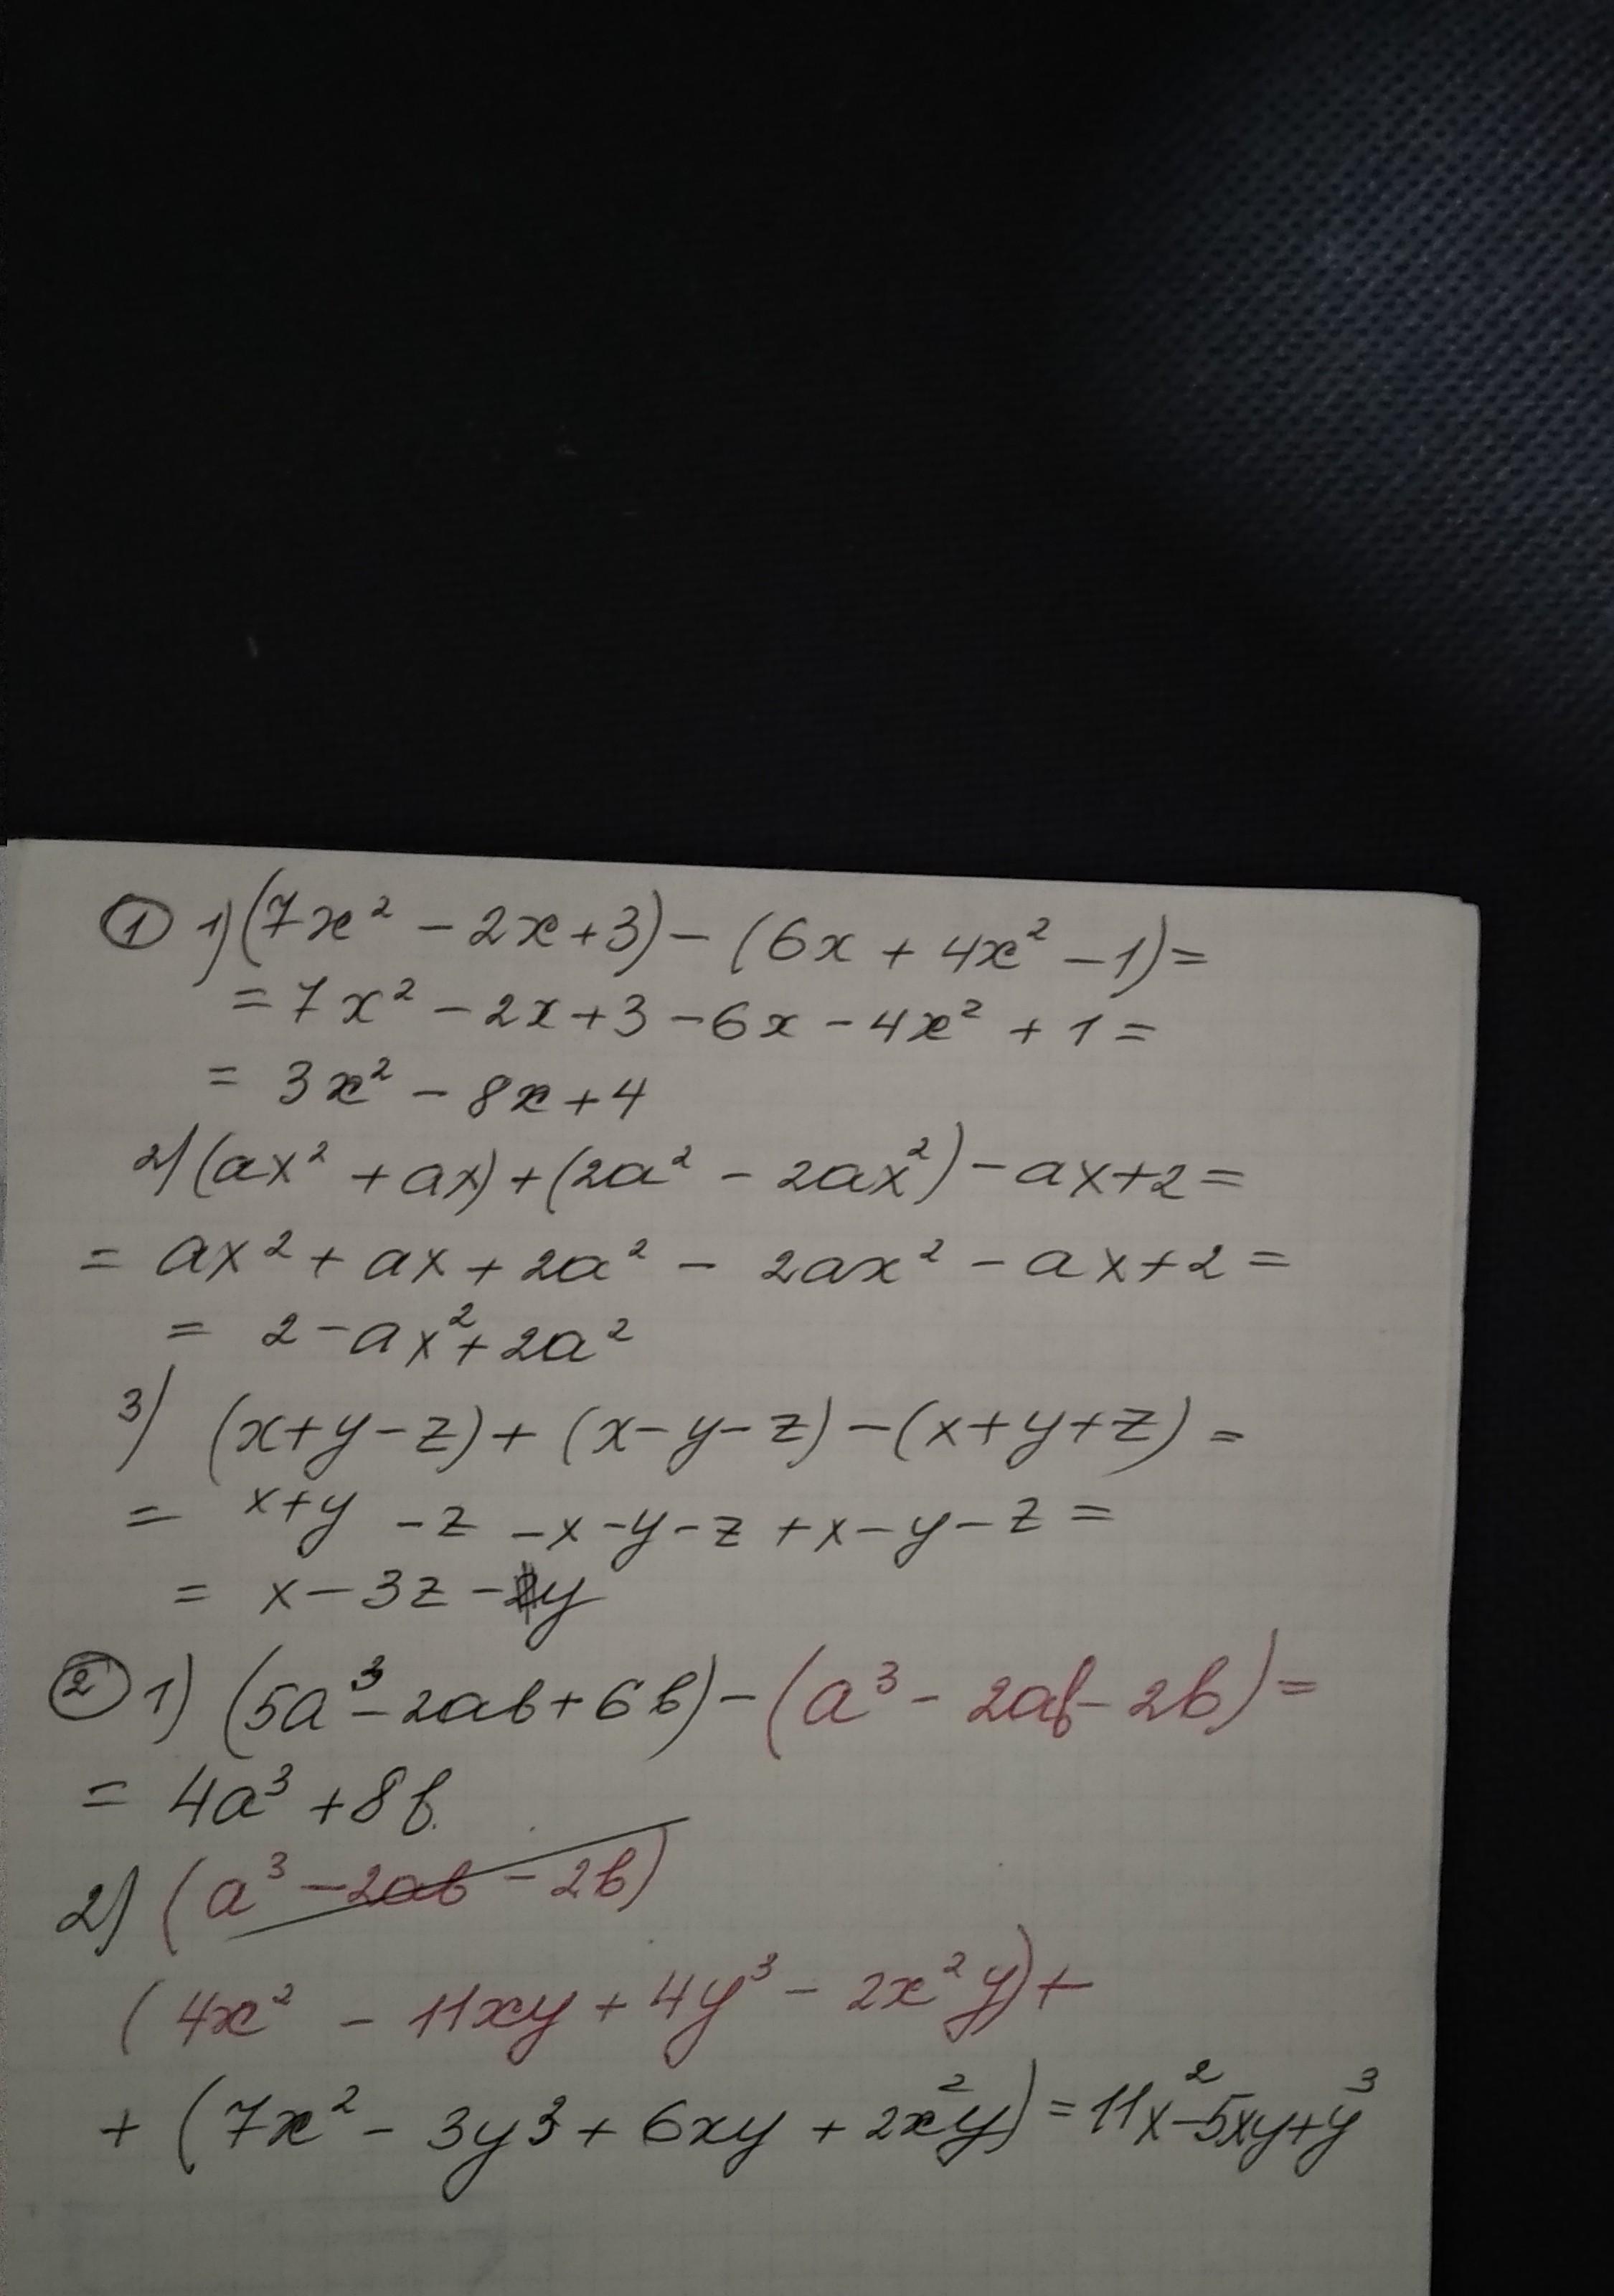 ① 1) (7x² - 2x + 3) - (6x + 4x² - 1) =
= 7x² - 2x + 3 - 6x - 4x² + 1 =
= 3x² - 8x + 4
2) (ax² + ax) + (2a² - 2ax²) - ax + 2 =
= ax² + ax + 2a² - 2ax² - ax + 2 =
= 2 - ax² + 2a²
3) (x + y - z) + (x - y - z) - (x + y + z) =
= x + y - z - x - y - z + x - y - z =
= x - 3z - y
② 1) (5a³ - 2ab + 6b) - (a³ - 2ab - 2b) =
= 4a³ + 8b.
2) (a³ - 2ab - 2b)
(4x² - 11xy + 4y³ - 2x²y) +
+ (7x² - 3y³ + 6xy + 2x²y) = 11x² - 5xy + y³